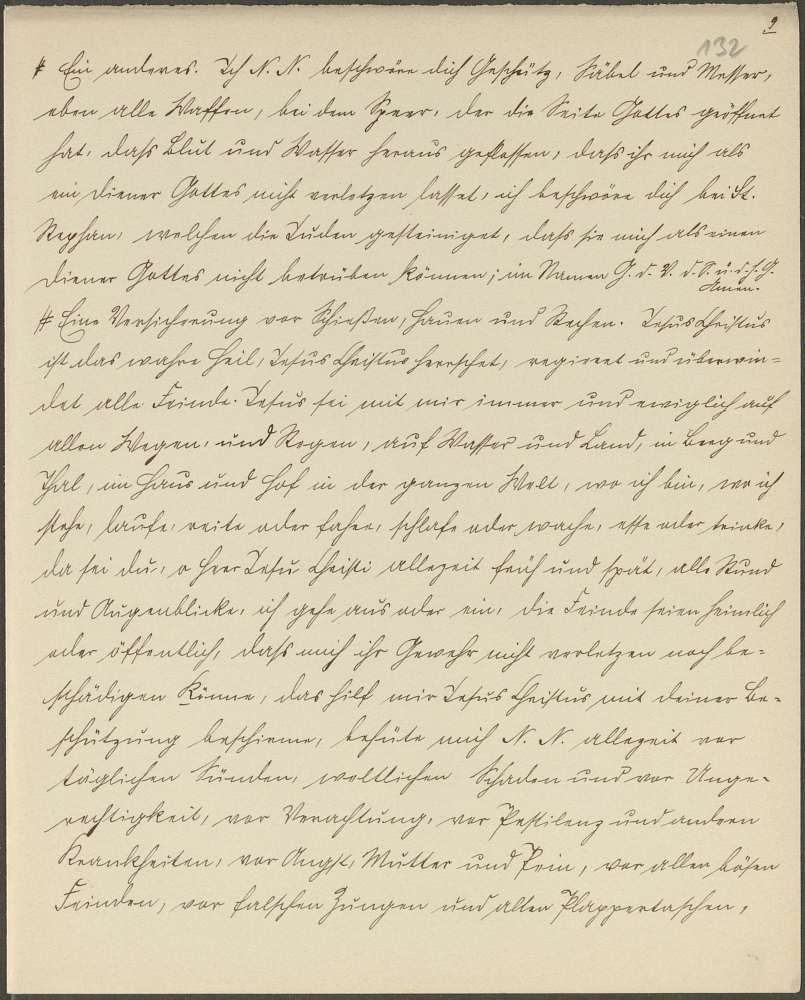 9
132
# Ein anderes. Ich N. N. beschwöre dich Geschütz, Säbel und Messer,
eben alle Waffen, bei dem Speer, der die Seite Gottes geöffnet
hat, daß Blut und Wasser heraus geflossen, daß ihr mich als
ein Diener Gottes nicht verletzen lasset, ich beschwöre dich bei St.
Stephan, welchen die Juden gesteiniget, daß sie mich als einen
Diener Gottes nicht betrüben können; im Namen G. d. V. d. S. u. d. h. G.
Amen.
# Eine Versicherung vor Schießen, Hauen und Stechen. Jesus Christus
ist das wahre Heil, Jesus Christus herrschet, regieret und überwin-
det alle Feinde. Jesus sei mit mir immer und ewiglich auf
allen Wegen, und Stegen, auf Wasser und Land, in Berg und
Thal, im Haus und Hof in der ganzen Welt, wo ich bin, wo ich
stehe, laufe, reite oder fahre, schlafe oder wache, esse oder trinke,
da sei du, o Herr Jesu Christi allezeit früh und spät, alle Stund
und Augenblicke, ich gehe aus oder ein, die Feinde seien heimlich
oder öffentlich, daß mich ihr Gewehr nicht verletzen noch be-
schädigen Könne, das hilf mir Jesus Christus mit deiner Be-
schützung beschirme, behüte mich N. N. allezeit vor
täglichen Sünden, weltlichen Schaden und vor Unge-
rechtigkeit, vor Verachtung, vor Pestilenz und andern
Krankheiten, vor Angst, Mutter und Pein, vor allen bösen
Feinden, vor falschen Zungen und alten Plappertaschen,